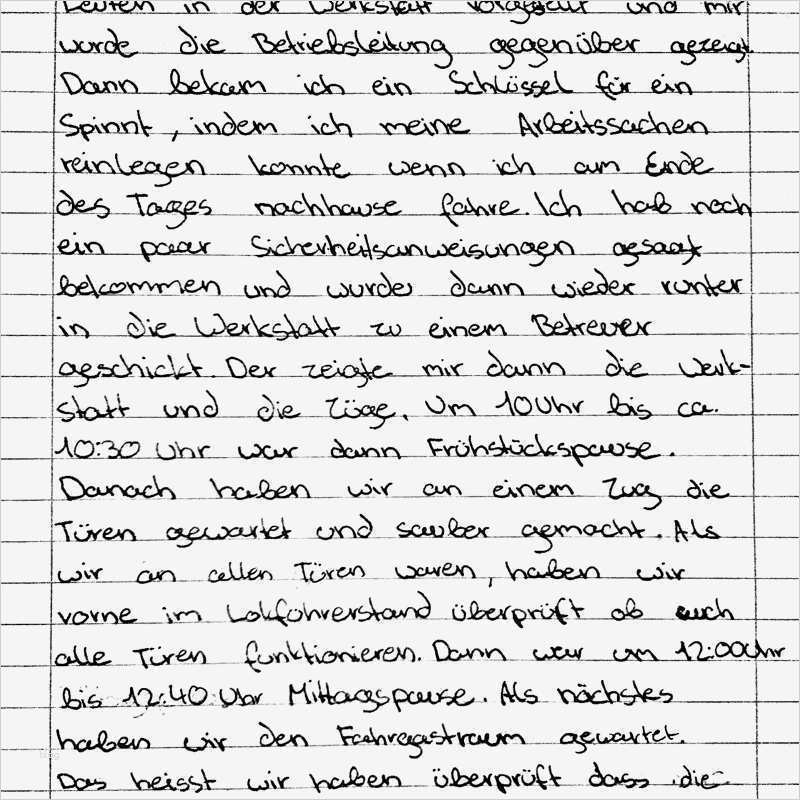 Leuten in der Werkstatt vorgestellt und mir
wurde die Betriebsleitung gegenüber gezeigt.
Dann bekam ich ein Schlüssel für ein
Spinnt, indem ich meine Arbeitssachen
reinlegen konnte wenn ich am Ende
des Tages nachhause fahre. Ich hab noch
ein paar Sicherheitsanweisungen gesagt
bekommen und wurde dann wieder runter
in die Werkstatt zu einem Betreuer
geschickt. Der zeigte mir dann die Werk-
statt und die Züge. Um 10Uhr bis ca.
10:30 Uhr war dann Frühstückspause.
Danach haben wir an einem Zug die
Türen gewartet und sauber gemacht. Als
wir an allen Türen waren, haben wir
vorne im Lokführerstand überprüft ob auch
alle Türen funktionieren. Dann war um 12:00Uhr
bis 12:40 Uhr Mittagspause. Als nächstes
haben wir den Fahrgastraum gewartet.
Das heisst wir haben überprüft dass die